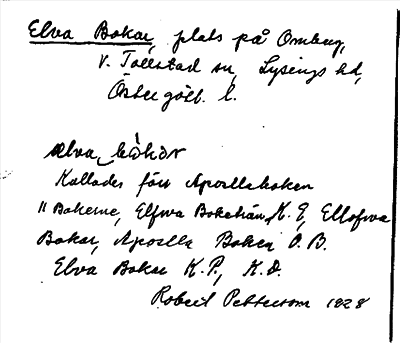 Elva Bokar, plats på Omberg,
V. Tollstad sn, Lysings hd,
Östergötl. l.
ælva bωkαr
Kallades förr Apostlaboken
" Bokerne, Elfva Bokehian, K. E, Ellofva
Bokar, Apostla Boken O. B.
Elva Bokar K. P., K. D.
Robert Pettersson 1928